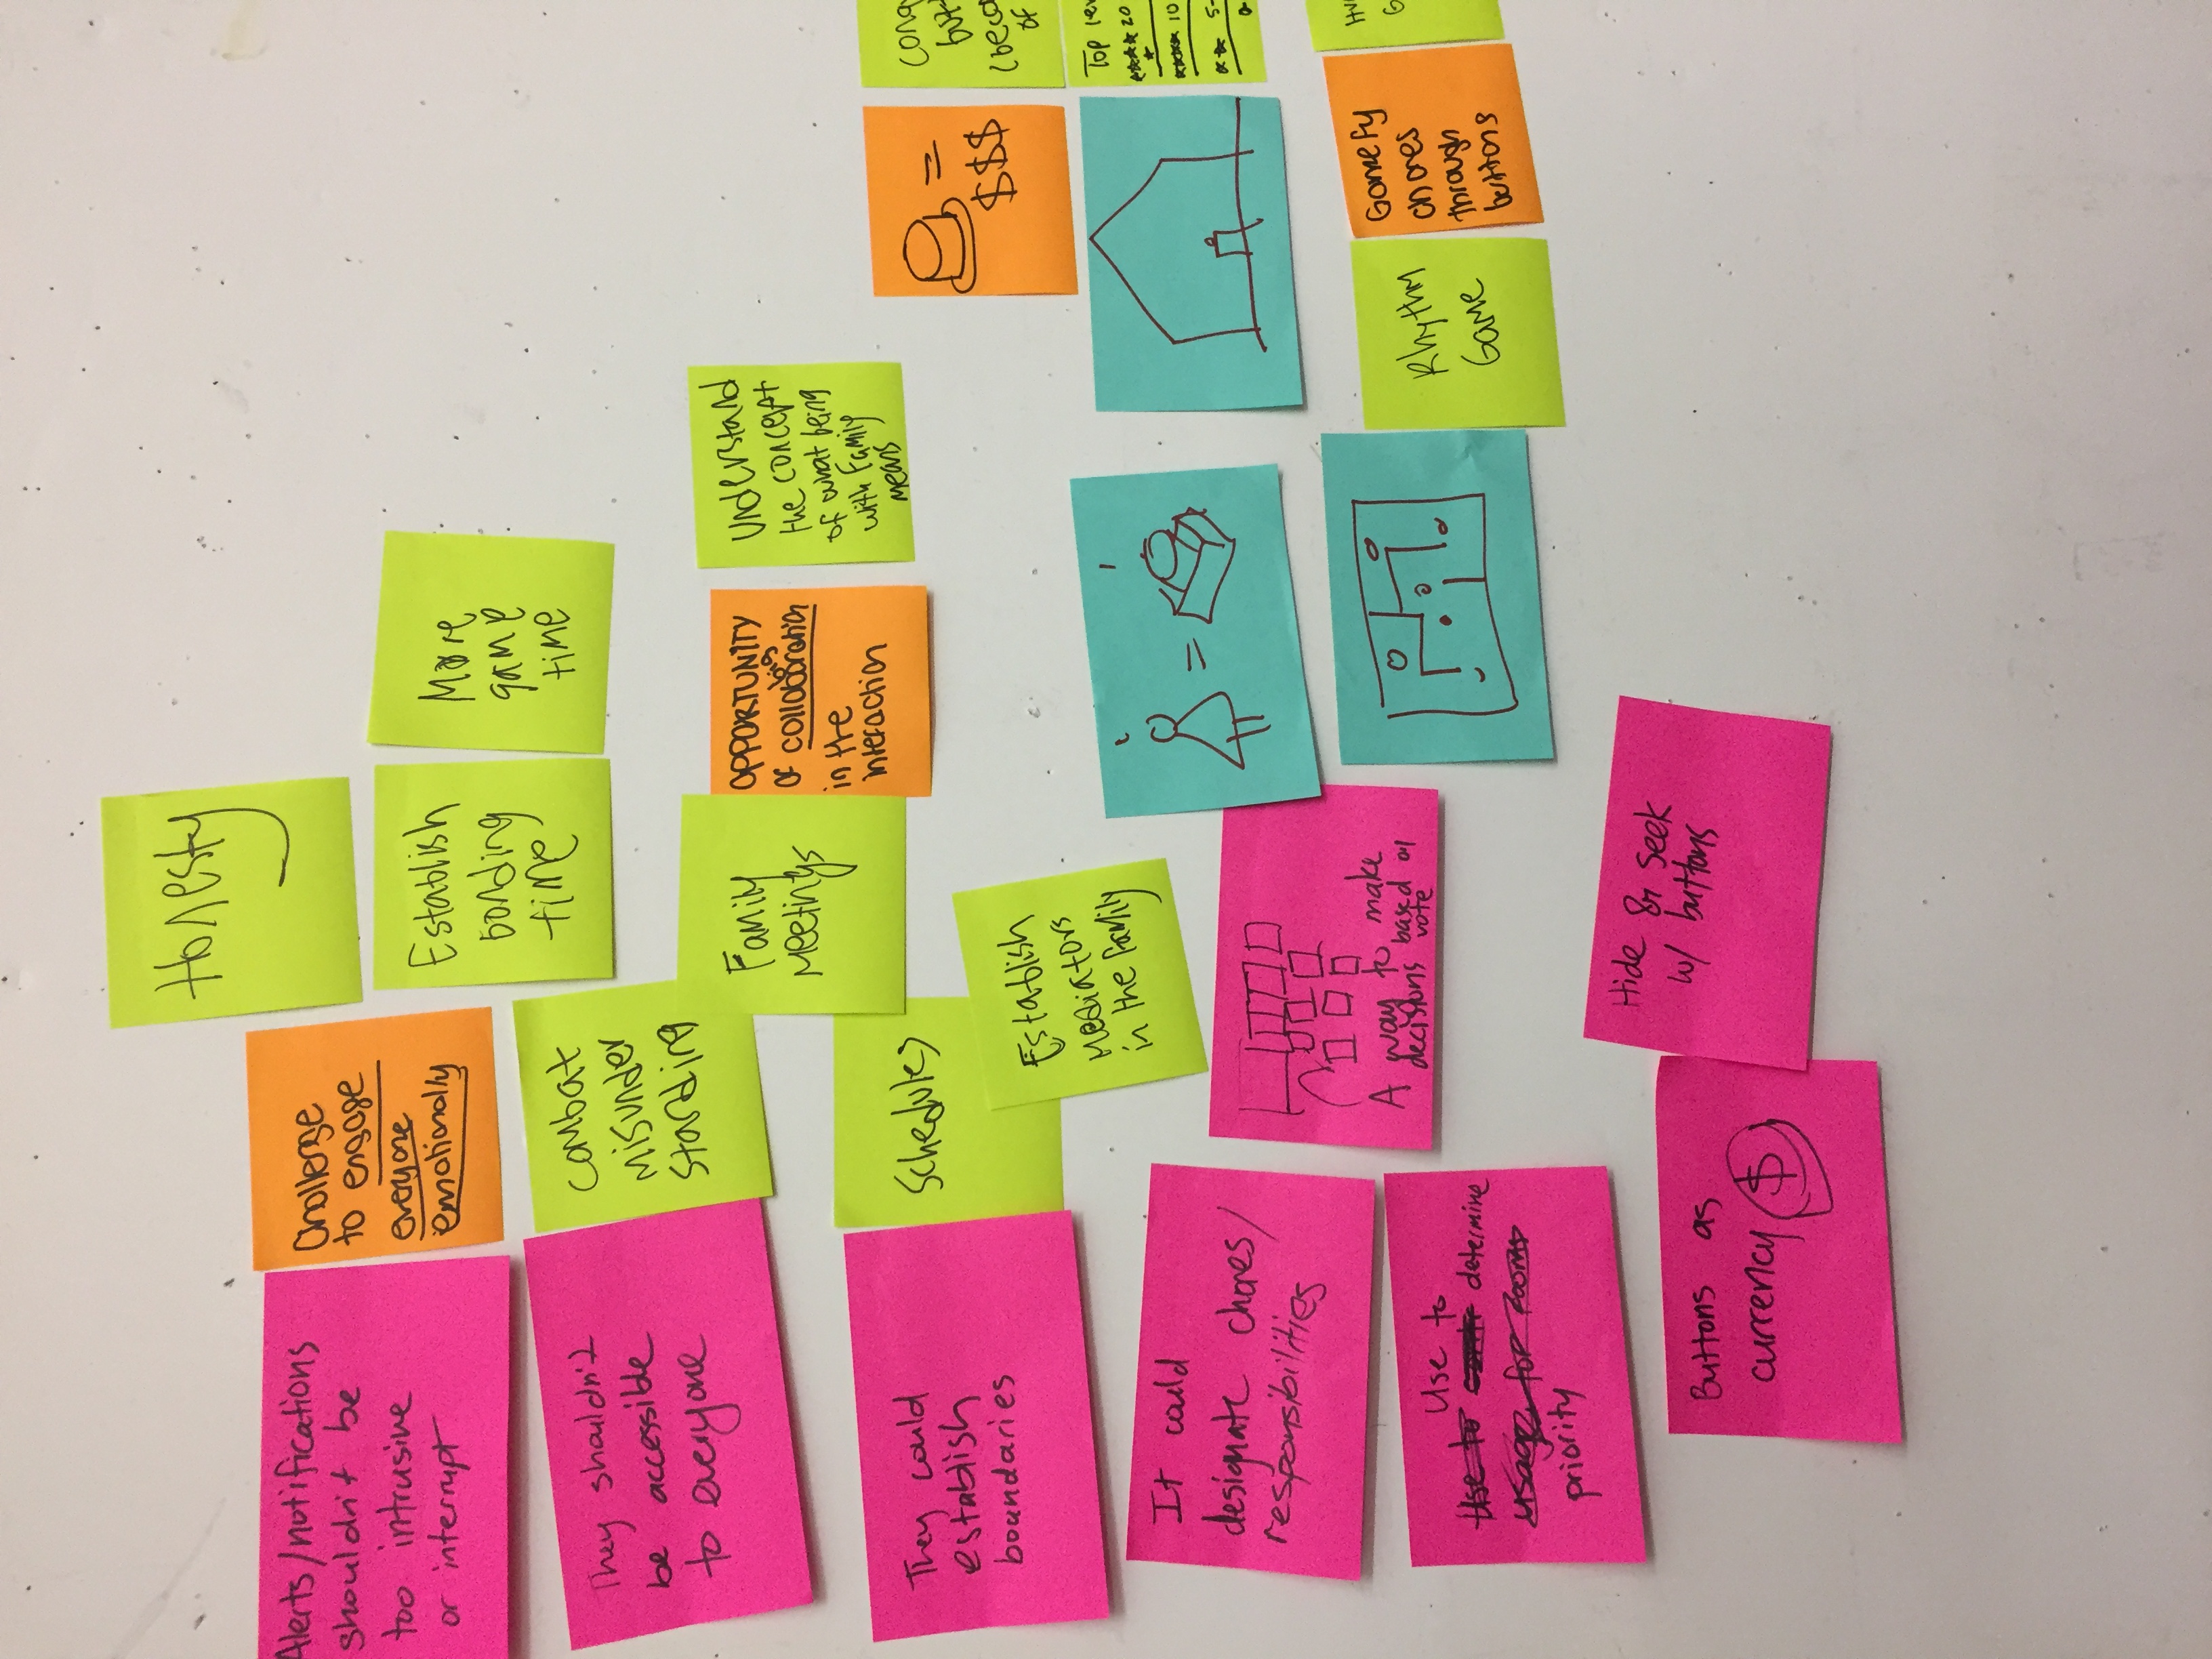 Honesty
Alerts/notifications
shouldn't be
too intrusive
or interrupt
Challenge
to engage
everyone
emotionally
Establish
bonding
time
More
game
time
They shouldn't
be accessible
to everyone
Combat
misunder
standing
Family
Meetings
OPPORTUNITY
of big
collaboration
in the
interaction
Understand
the concept
of what being
with Family
means
They could
establish
boundaries
Schedules
Establish
Mediators
in the family
=
$$$
It could
designate chores/
responsibilities
A way to make
decisions based on
vote
=
Top
20
10
5-
Use to
determine
priority
Rhythm
Game
Gamefy
chores
through
buttons
Buttons as
currency $
Hide & seek
w/ buttons